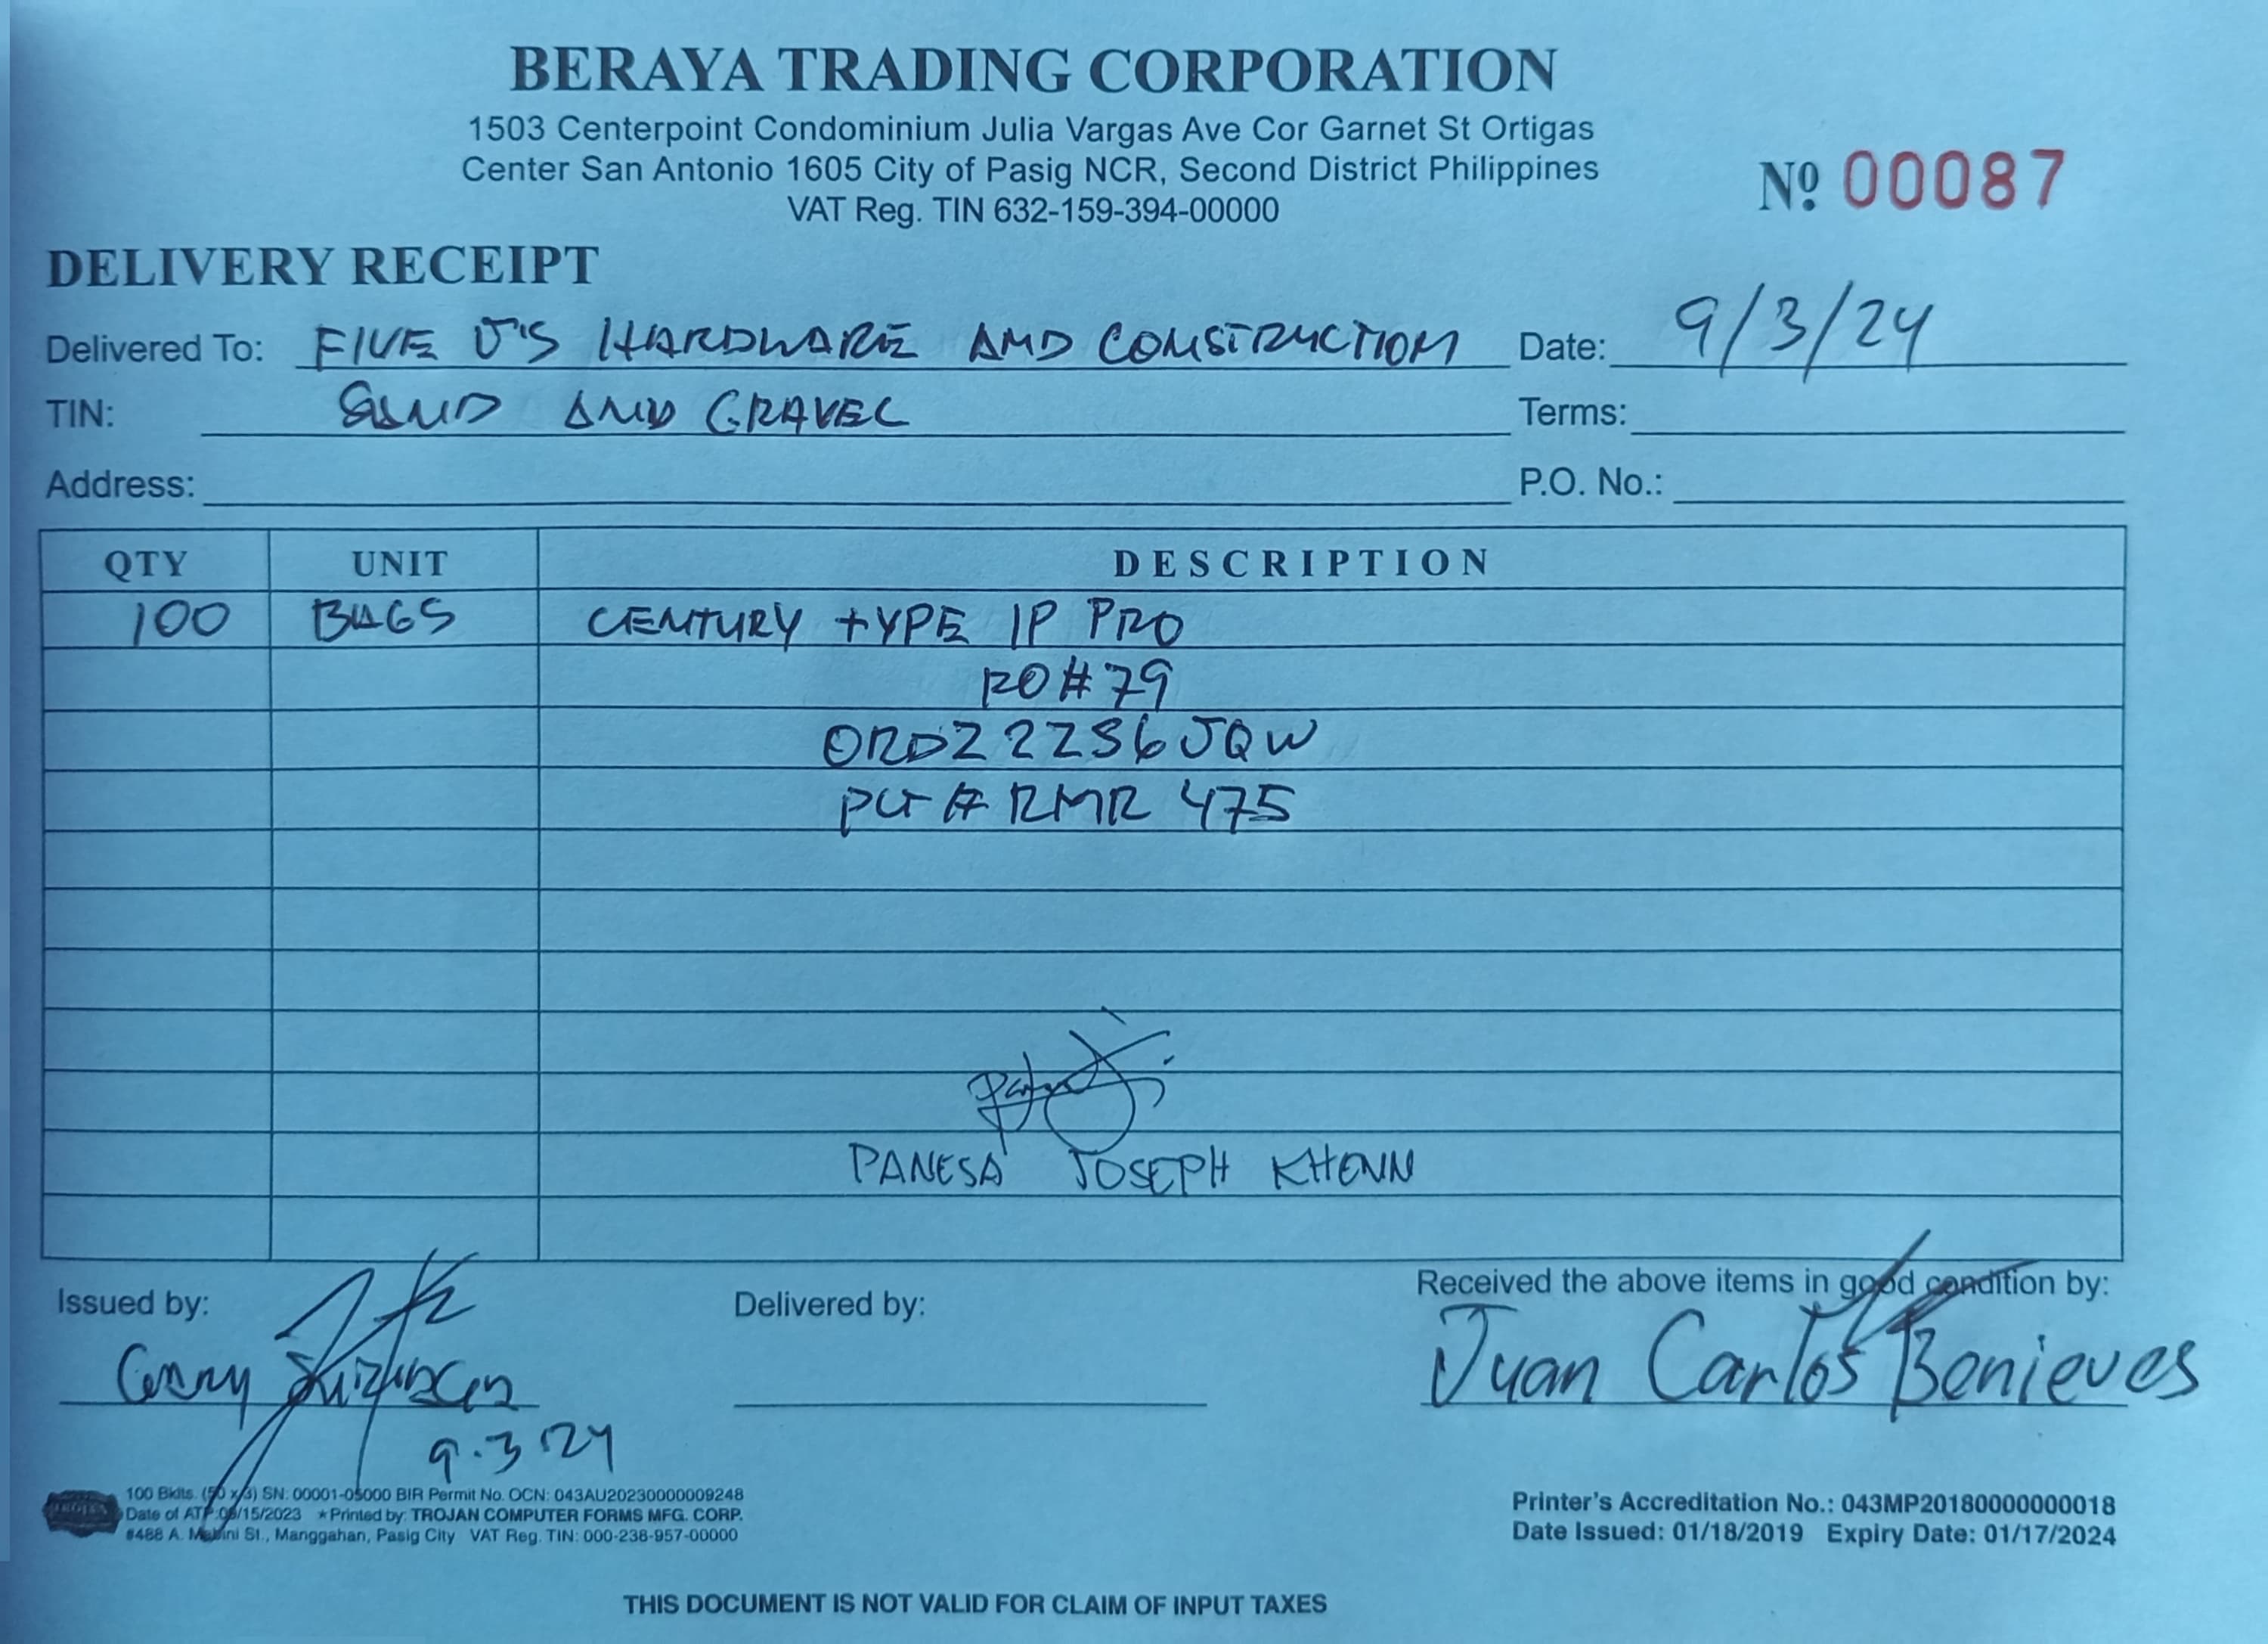 BERAYA TRADING CORPORATION
1503 Centerpoint Condominium Julia Vargas Ave Cor Garnet St Ortigas
Center San Antonio 1605 City of Pasig NCR, Second District Philippines
VAT Reg. TIN 632-159-394-00000
Nº 00087
DELIVERY RECEIPT
Delivered To: FIVE J'S HARDWARE AND CONSTRUCTION Date: 9/3/24
TIN: SAND AND GRAVEL Terms:
Address: P.O. No.:
QTY UNIT DESCRIPTION
100 BAGS CENTURY TYPE 1P PRO
RO#79
ORDZ2ZS6JQW
PLT# RMR 475
PANESA JOSEPH KHENN
Issued by: Delivered by: Received the above items in good condition by:
Juan Carlos Benieves
9.3.24
100 Bklts. (50 x 3) SN: 00001-05000 BIR Permit No. OCN: 043AU20230000009248
Date of ATP: /15/2023 ★Printed by: TROJAN COMPUTER FORMS MFG. CORP.
#488 A. Mabini St., Manggahan, Pasig City VAT Reg. TIN: 000-238-957-00000
Printer's Accreditation No.: 043MP20180000000018
Date Issued: 01/18/2019 Expiry Date: 01/17/2024
THIS DOCUMENT IS NOT VALID FOR CLAIM OF INPUT TAXES